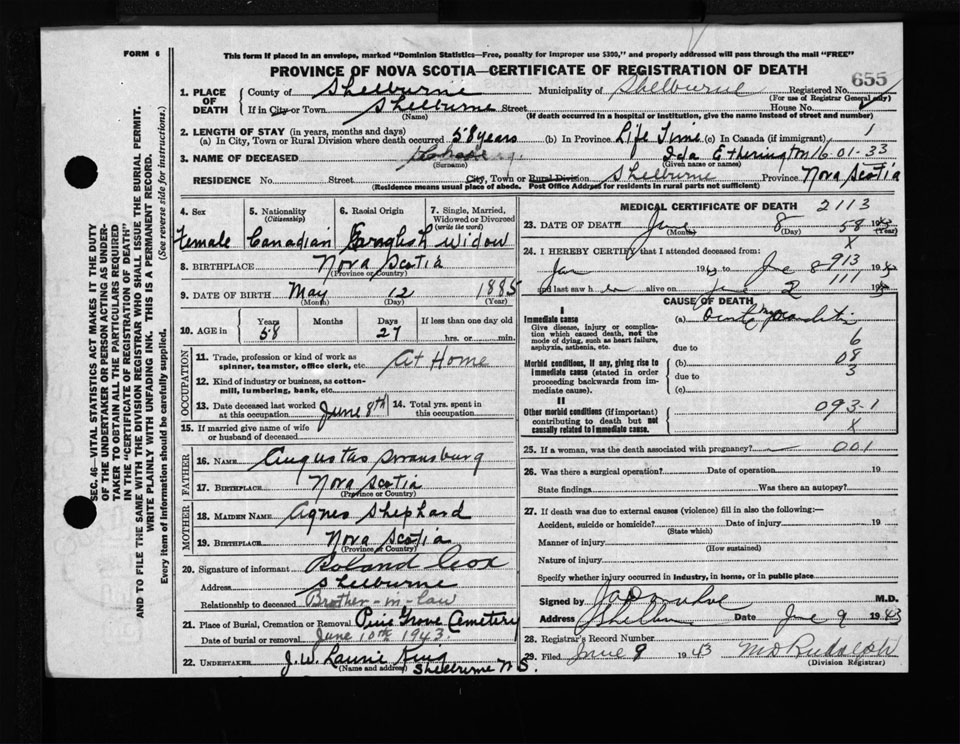 FORM 6
This form if placed in an envelope, marked "Dominion Statistics—Free, penalty for improper use $300," and properly addressed will pass through the mail "FREE"
PROVINCE OF NOVA SCOTIA—CERTIFICATE OF REGISTRATION OF DEATH
655
1. PLACE OF DEATH
County of Shelburne Municipality of Shelburne Registered No.
(For use of Registrar General only)
If in City or Town Shelburne Street House No.
(Name) (If death occurred in a hospital or institution, give the name instead of street and number)
2. LENGTH OF STAY (in years, months and days)
(a) In City, Town or Rural Division where death occurred 58 years (b) In Province Life Time (c) In Canada (if immigrant) 1
3. NAME OF DECEASED Ida Etherington 16 01-33
(Surname) (Given name or names)
RESIDENCE No. Street City, Town or Rural Division Shelburne Province Nova Scotia
(Residence means usual place of abode. Post Office Address for residents in rural parts not sufficient)
4. Sex
Female
5. Nationality
(Citizenship)
Canadian
6. Racial Origin
English
7. Single, Married, Widowed or Divorced
(write the word)
widow
8. BIRTHPLACE Nova Scotia
(Province or Country)
9. DATE OF BIRTH May 12 1885
(Month) (Day) (Year)
10. AGE in
Years Months Days If less than one day old
58 27 hrs. or min.
OCCUPATION
11. Trade, profession or kind of work as spinner, teamster, office clerk, etc. At Home
12. Kind of industry or business, as cotton-mill, lumbering, bank, etc.
13. Date deceased last worked at this occupation June 8th
14. Total yrs. spent in this occupation
15. If married give name of wife or husband of deceased
FATHER
16. NAME Augustas Swansburg
17. BIRTHPLACE Nova Scotia
(Province or Country)
MOTHER
18. MAIDEN NAME Agnes Shephard
19. BIRTHPLACE Nova Scotia
(Province or Country)
20. Signature of informant Roland Cox
Address Shelburne
Relationship to deceased Brother-in-law
21. Place of Burial, Cremation or Removal Pine Grove Cemetery
Date of burial or removal June 10th 1943
22. UNDERTAKER J.W. Laurie King
(Name and address) Shelburne N.S.
MEDICAL CERTIFICATE OF DEATH 2113
23. DATE OF DEATH June 8 58
(Month) (Day) (Year)
X
24. I HEREBY CERTIFY that I attended deceased from:
Jan 19 to June 8 913
and last saw h alive on June 2 111
CAUSE OF DEATH
I
Immediate cause
Give disease, injury or complication which caused death, not the mode of dying, such as heart failure, asphyxia, asthenia, etc.
(a)
due to 6
Morbid conditions, if any, giving rise to immediate cause (stated in order proceeding backwards from immediate cause).
(b) 08
due to 3
(c)
II
Other morbid conditions (if important) contributing to death but not causally related to immediate cause. 093-1
X
25. If a woman, was the death associated with pregnancy? 001
26. Was there a surgical operation? Date of operation 19
State findings Was there an autopsy?
27. If death was due to external causes (violence) fill in also the following:—
Accident, suicide or homicide? Date of injury 19
(State which)
Manner of injury
(How sustained)
Nature of injury
Specify whether injury occurred in industry, in home, or in public place
Signed by M.D.
Address Date June 9 1943
28. Registrar's Record Number
29. Filed June 9 1943 M D Rudolph
(Division Registrar)
SEC. 46—VITAL STATISTICS ACT MAKES IT THE DUTY
OF THE UNDERTAKER OR PERSON ACTING AS UNDER-
TAKER TO OBTAIN ALL THE PARTICULARS REQUIRED
IN THE "CERTIFICATE OF REGISTRATION OF DEATH"
AND TO FILE THE SAME WITH THE DIVISION REGISTRAR WHO SHALL ISSUE THE BURIAL PERMIT.
WRITE PLAINLY WITH UNFADING INK. THIS IS A PERMANENT RECORD.
Every item of information should be carefully supplied. (See reverse side for instructions.)